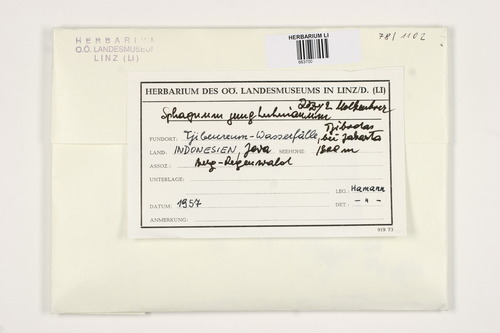 HERBARIUM
O.Ö. LANDESMUSEUM
LINZ (LI)
HERBARIUM LI
663700
78/1102
HERBARIUM DES OÖ. LANDESMUSEUMS IN LINZ/D. (LI)
Sphagnum junghuhnianum Dozy & Molkenboer
FUNDORT: Tjibeureum-Wasserfälle, Tjibodas bei Jakarta
LAND: INDONESIEN, Java SEEHÖHE: 1800 m
ASSOZ.: Berg-Regenwald
UNTERLAGE:
LEG.: Hamann
DATUM: 1957 DET.: - " -
ANMERKUNG:
919 73